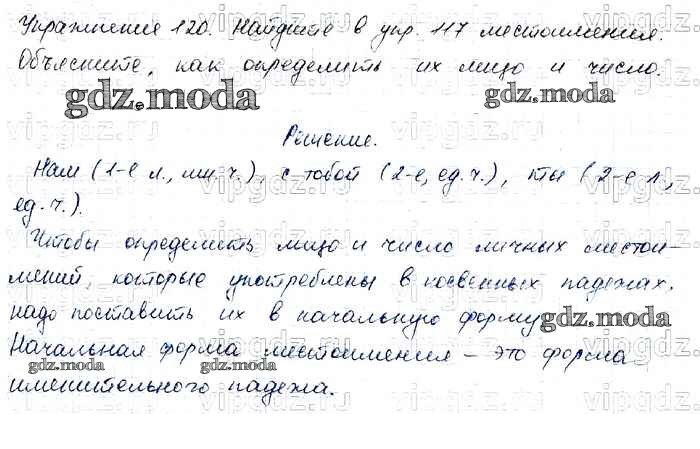 Упражнение 120. Найдите в упр. 117 местоимения.
Объясните, как определить их лицо и число.
gdz.moda gdz.moda
Решение.
Нам (1-е л., мн. ч.), с тобой (2-е, ед. ч.), ты (2-е л.,
ед. ч.).
Чтобы определить лицо и число личных местои-
мений, которые употреблены в косвенных падежах,
надо поставить их в начальную форму
gdz.moda
Начальная форма местоимения – это форма
gdz.moda
именительного падежа.
vipgdz.ru